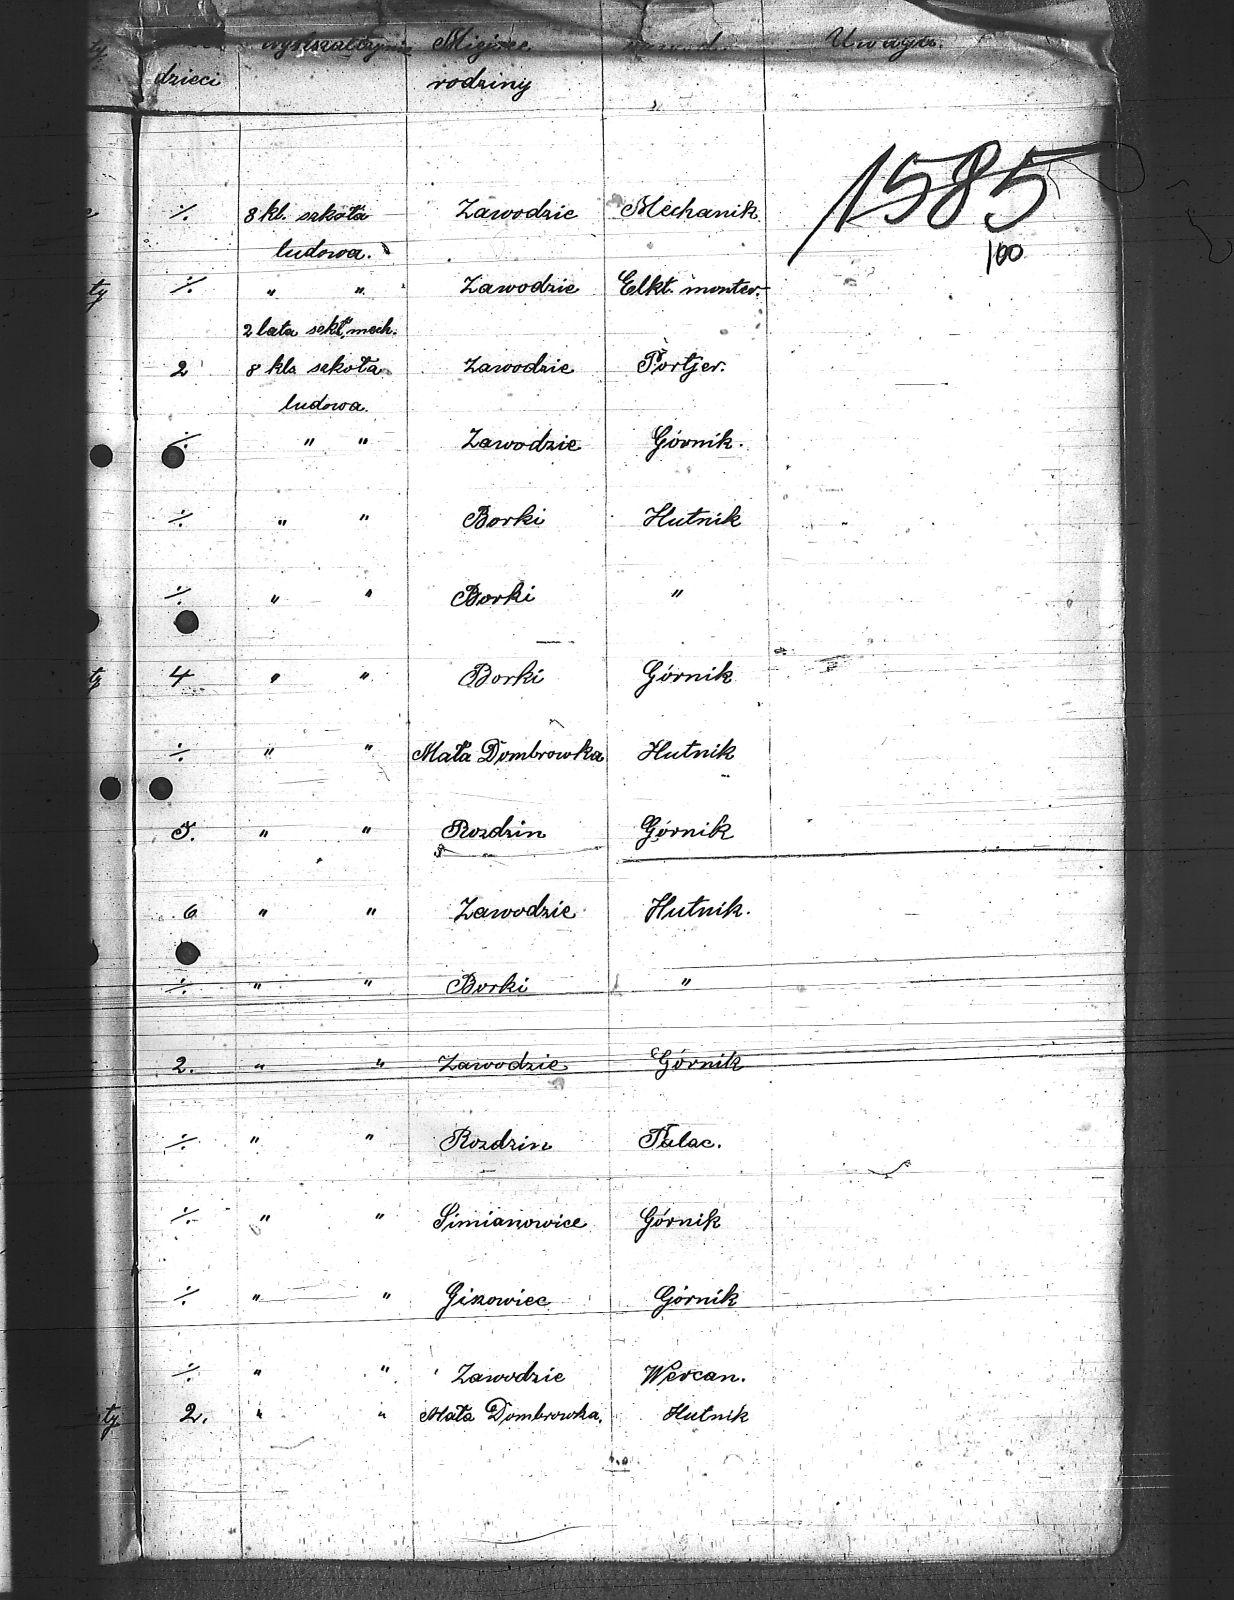 wykształcenie Miejsce zawod Uwagi.
dzieci rodziny
1585
100
÷ 8 kl. szkoła Zawodzie Mechanik
ludowa.
ty ÷ " " Zawodzie Elkt. monter.
2 lata szkł. mech.
2 8 kla szkoła Zawodzie Portjer.
ludowa.
÷ " " Zawodzie Górnik.
÷ " " Borki Hutnik
÷ " " Borki "
ty 4 " " Borki Górnik
÷ " " Mała Dombrowka Hutnik
5. " " Rozdzin Górnik
6 " " Zawodzie Hutnik.
÷ " " Borki "
2. " " Zawodzie Górnik
÷ " " Rozdzin Palac.
÷ " " Simianowice Górnik
÷ " " Giszowiec Górnik
÷ " " Zawodzie Wercan.
ty 2. " " Mała Dombrowka. Hutnik